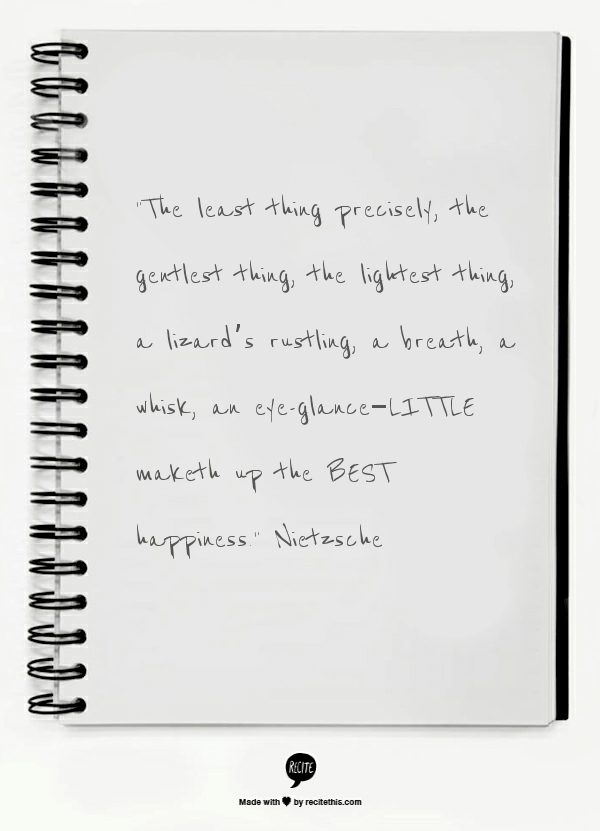 "The least thing precisely, the
gentlest thing, the lightest thing,
a lizard's rustling, a breath, a
whisk, an eye-glance—LITTLE
maketh up the BEST
happiness." Nietzsche
RECITE
Made with ♥ by recitethis.com